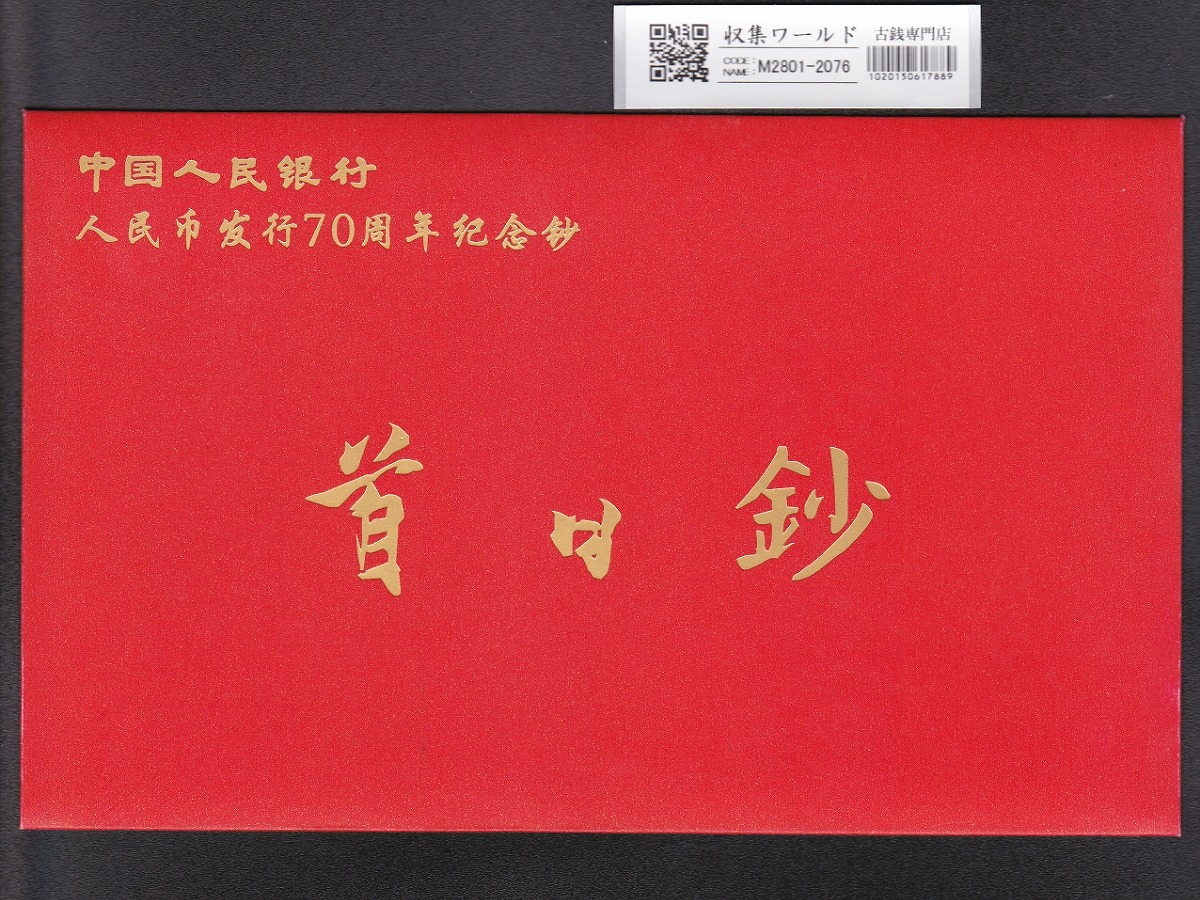 収集ワールド 古銭専門店
CODE:
NAME: M2801-2076
1020150617889
中国人民银行
人民币发行70周年纪念钞
首日鈔